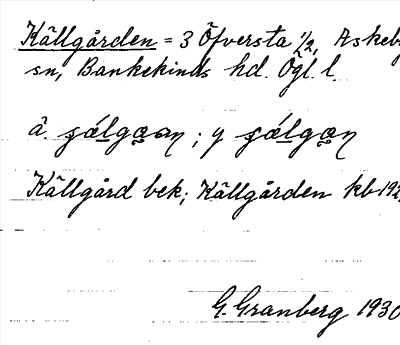 Källgården = 3 Öfversta 1/2, Askeby
sn, Bankekinds hd. Ögl. l.
Källgård bek; Källgården kb 192
G. Granberg 1930